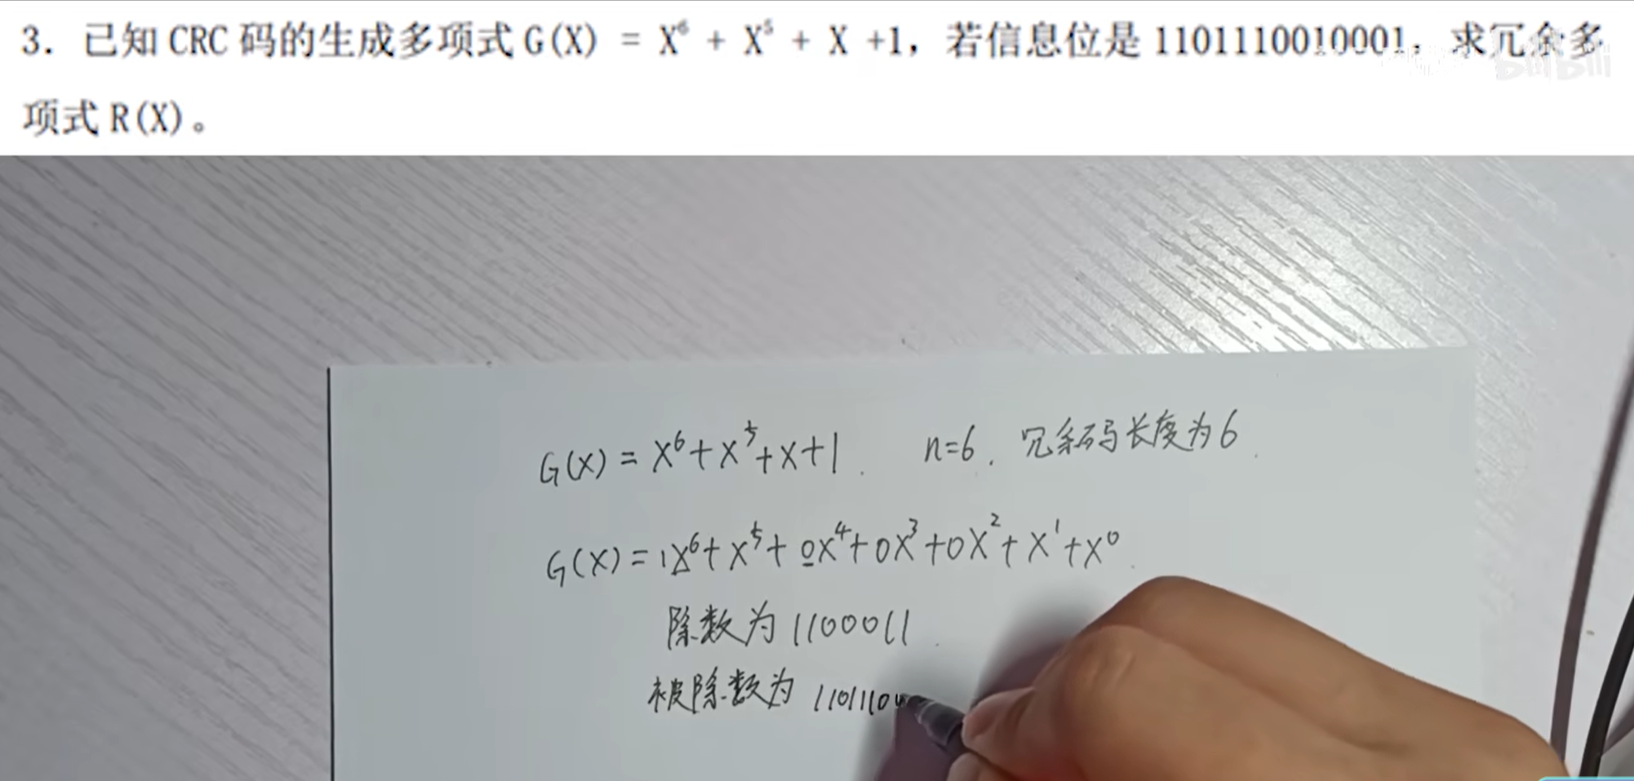 3. 已知 CRC 码的生成多项式 G(X) = X⁶ + X⁵ + X +1，若信息位是 1101110010001，求冗余多
项式 R(X)。
bilibili
G(X) = X⁶+X⁵+X+1. n=6. 冗余码长度为6.
G(X) = 1X⁶+X⁵+0X⁴+0X³+0X²+X¹+X⁰.
除数为 1100011.
被除数为 1101110